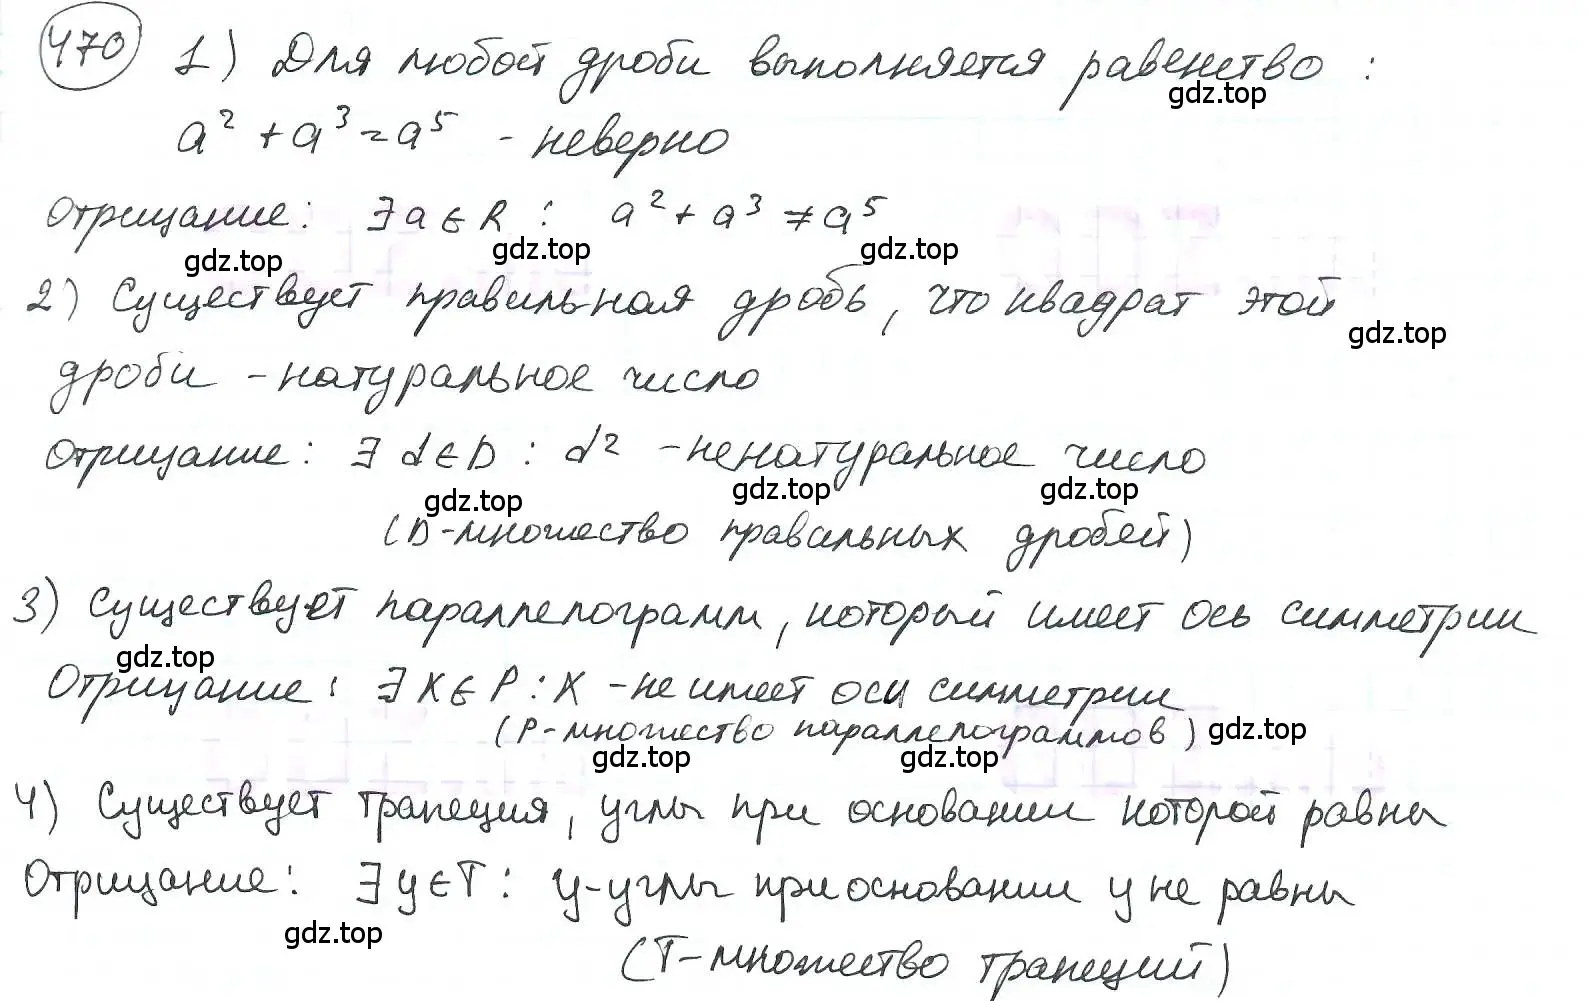 470 1) Для любой дроби выполняется равенство :
gdz.top
a² + a³ = a⁵ - неверно
Отрицание: ∃ a ∈ R : a² + a³ ≠ a⁵
gdz.top gdz.top gdz.top
2) Существует правильная дробь, что квадрат этой
gdz.top
дроби - натуральное число
Отрицание: ∃ d ∈ D : d² - ненатуральное число
gdz.top gdz.top gdz.top
(D - множество правильных дробей)
3) Существует параллелограмм, который имеет ось симметрии
gdz.top
Отрицание: ∃ X ∈ P : X - не имеет оси симметрии
(P - множество параллелограммов) gdz.top
gdz.top gdz.top
4) Существует трапеция, углы при основании которой равны
Отрицание: ∃ y ∈ T : y - углы при основании y не равны
gdz.top
(T - множество трапеций)